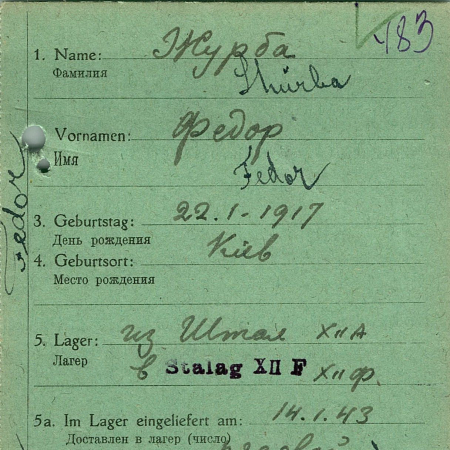 483
1. Name: Журба
Фамилия Shurba
Vornamen: Федор
Имя Fedor
Fedor
3. Geburtstag: 22.1-1917
День рождения
4. Geburtsort: Kiev
Место рождения
5. Lager: из Штал XII A
Лагер в Stalag XII F XII Ф.
5a. Im Lager eingeliefert am: 14.1.43
Доставлен в лагер (число)